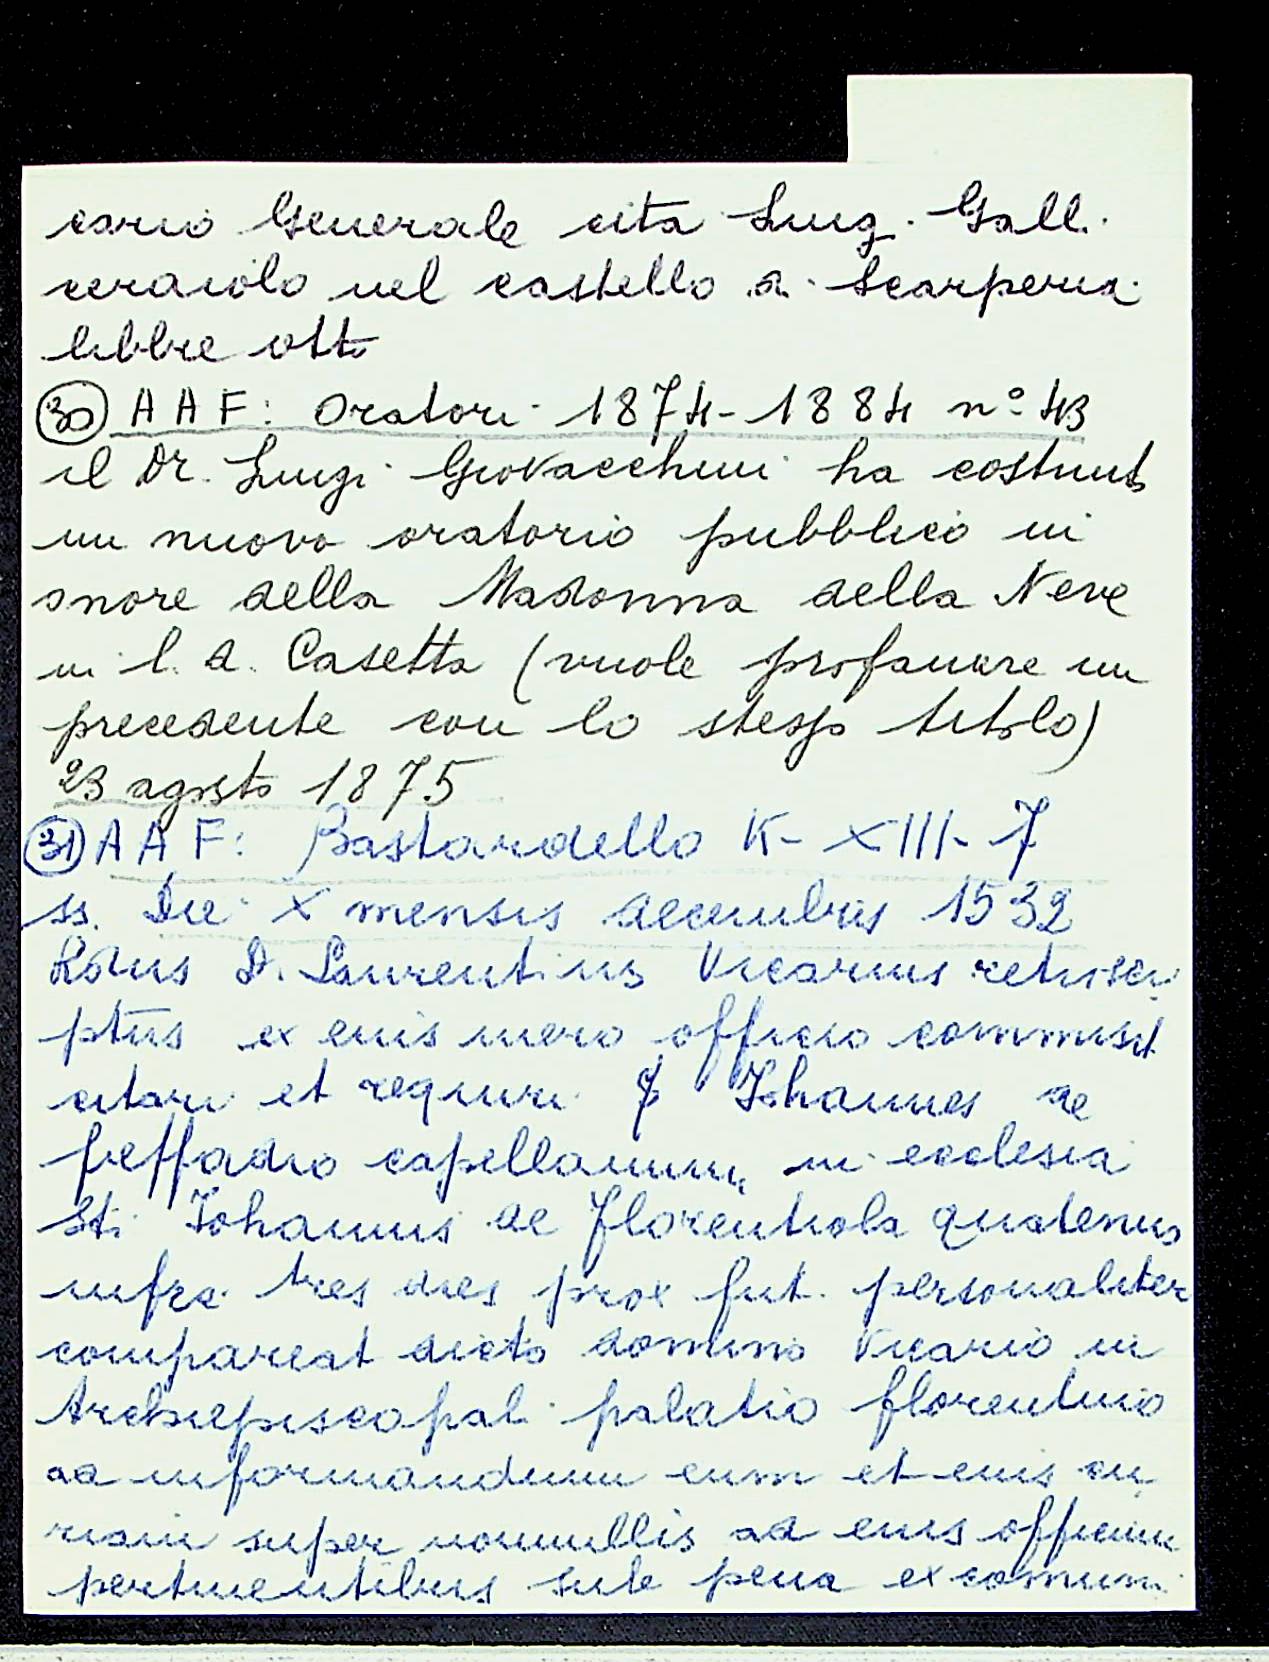 cario Generale cita Luig. Gall.
ceraiolo nel castello d. Scarperia
libbre otto
30 AAF: Oratori 1874-1884 n° 43
il Dr. Luigi Giovacchini ha costruito
un nuovo oratorio pubblico in
onore della Madonna della Neve
in l. d. Casetta (vuole profanare un
precedente con lo stesso titolo)
23 agosto 1875
31 AAF: Bastardello K-XIII-7
ss. Die X mensis decembris 1532
Rdus D. Laurentius Vicarius retrscri
ptus ex eius mero officio commisit
citari et requiri Johannes de
capellanum in ecclesia
Sti Johannis de Florentiola quatenus
infra tres dies prox fut. personaliter
compareat dicto domino Vicario in
Archiepiscopal. palatio florentino
ad informandum eum et eius cu
riam super nonnullis ad eius officium
pertinentibus sub pena excomuni